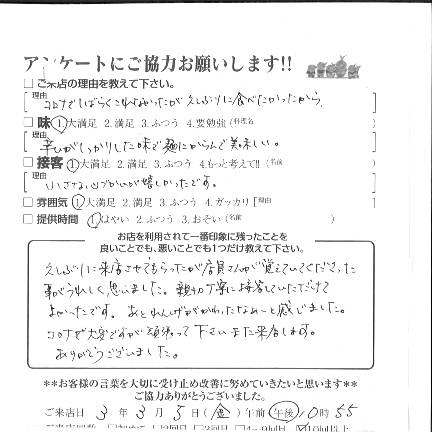 アンケートにご協力お願いします!!
□ご来店の理由を教えて下さい。
理由 コロナでしばらくこれなかったが久しぶりに食べたかったから
□味 1.大満足 2.満足 3.ふつう 4.要勉強(料理名
理由 辛いがしっかりした味で麺にからんで美味しい。
□接客 1.大満足 2.満足 3.ふつう 4.もっと考えて!!(名前
理由 小さな心づかいが嬉しかったです。
□雰囲気 1.大満足 2.満足 3.ふつう 4.ガッカリ[理由
□提供時間 1.はやい 2.ふつう 3.おそい(名前
お店を利用されて一番印象に残ったことを
良いことでも、悪いことでも1つだけ教えて下さい。
久しぶりに来店させてもらったが店員さんが覚えていてくださった
事がうれしく思いました。親切丁寧に接客していただけて
よかったです。あとれんげがかわったなぁーと感じました。
コロナで大変ですが頑張って下さいまた来店します。
ありがとうございました。
**お客様の言葉を大切に受け止め改善に努めていきたいと思います**
ご協力ありがとうございました。
ご来店日 3年3月5日(金)午前 午後 10時55